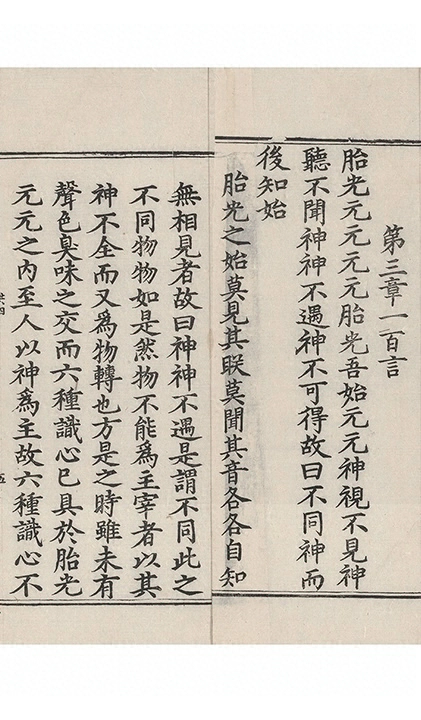 第三章一百言
胎光元元元元胎光吾始元元神視不見神
聽不聞神神不遇神不可得故曰不同神而
後知始
胎光之始莫見其眹莫聞其音各各自知
無相見者故曰神神不遇是謂不同此之
不同物物如是然物不能為主宰者以其
神不全而又為物轉也方是之時雖未有
聲色臭味之交而六種識心已具於胎光
元元之內至人以神為主故六種識心不
五